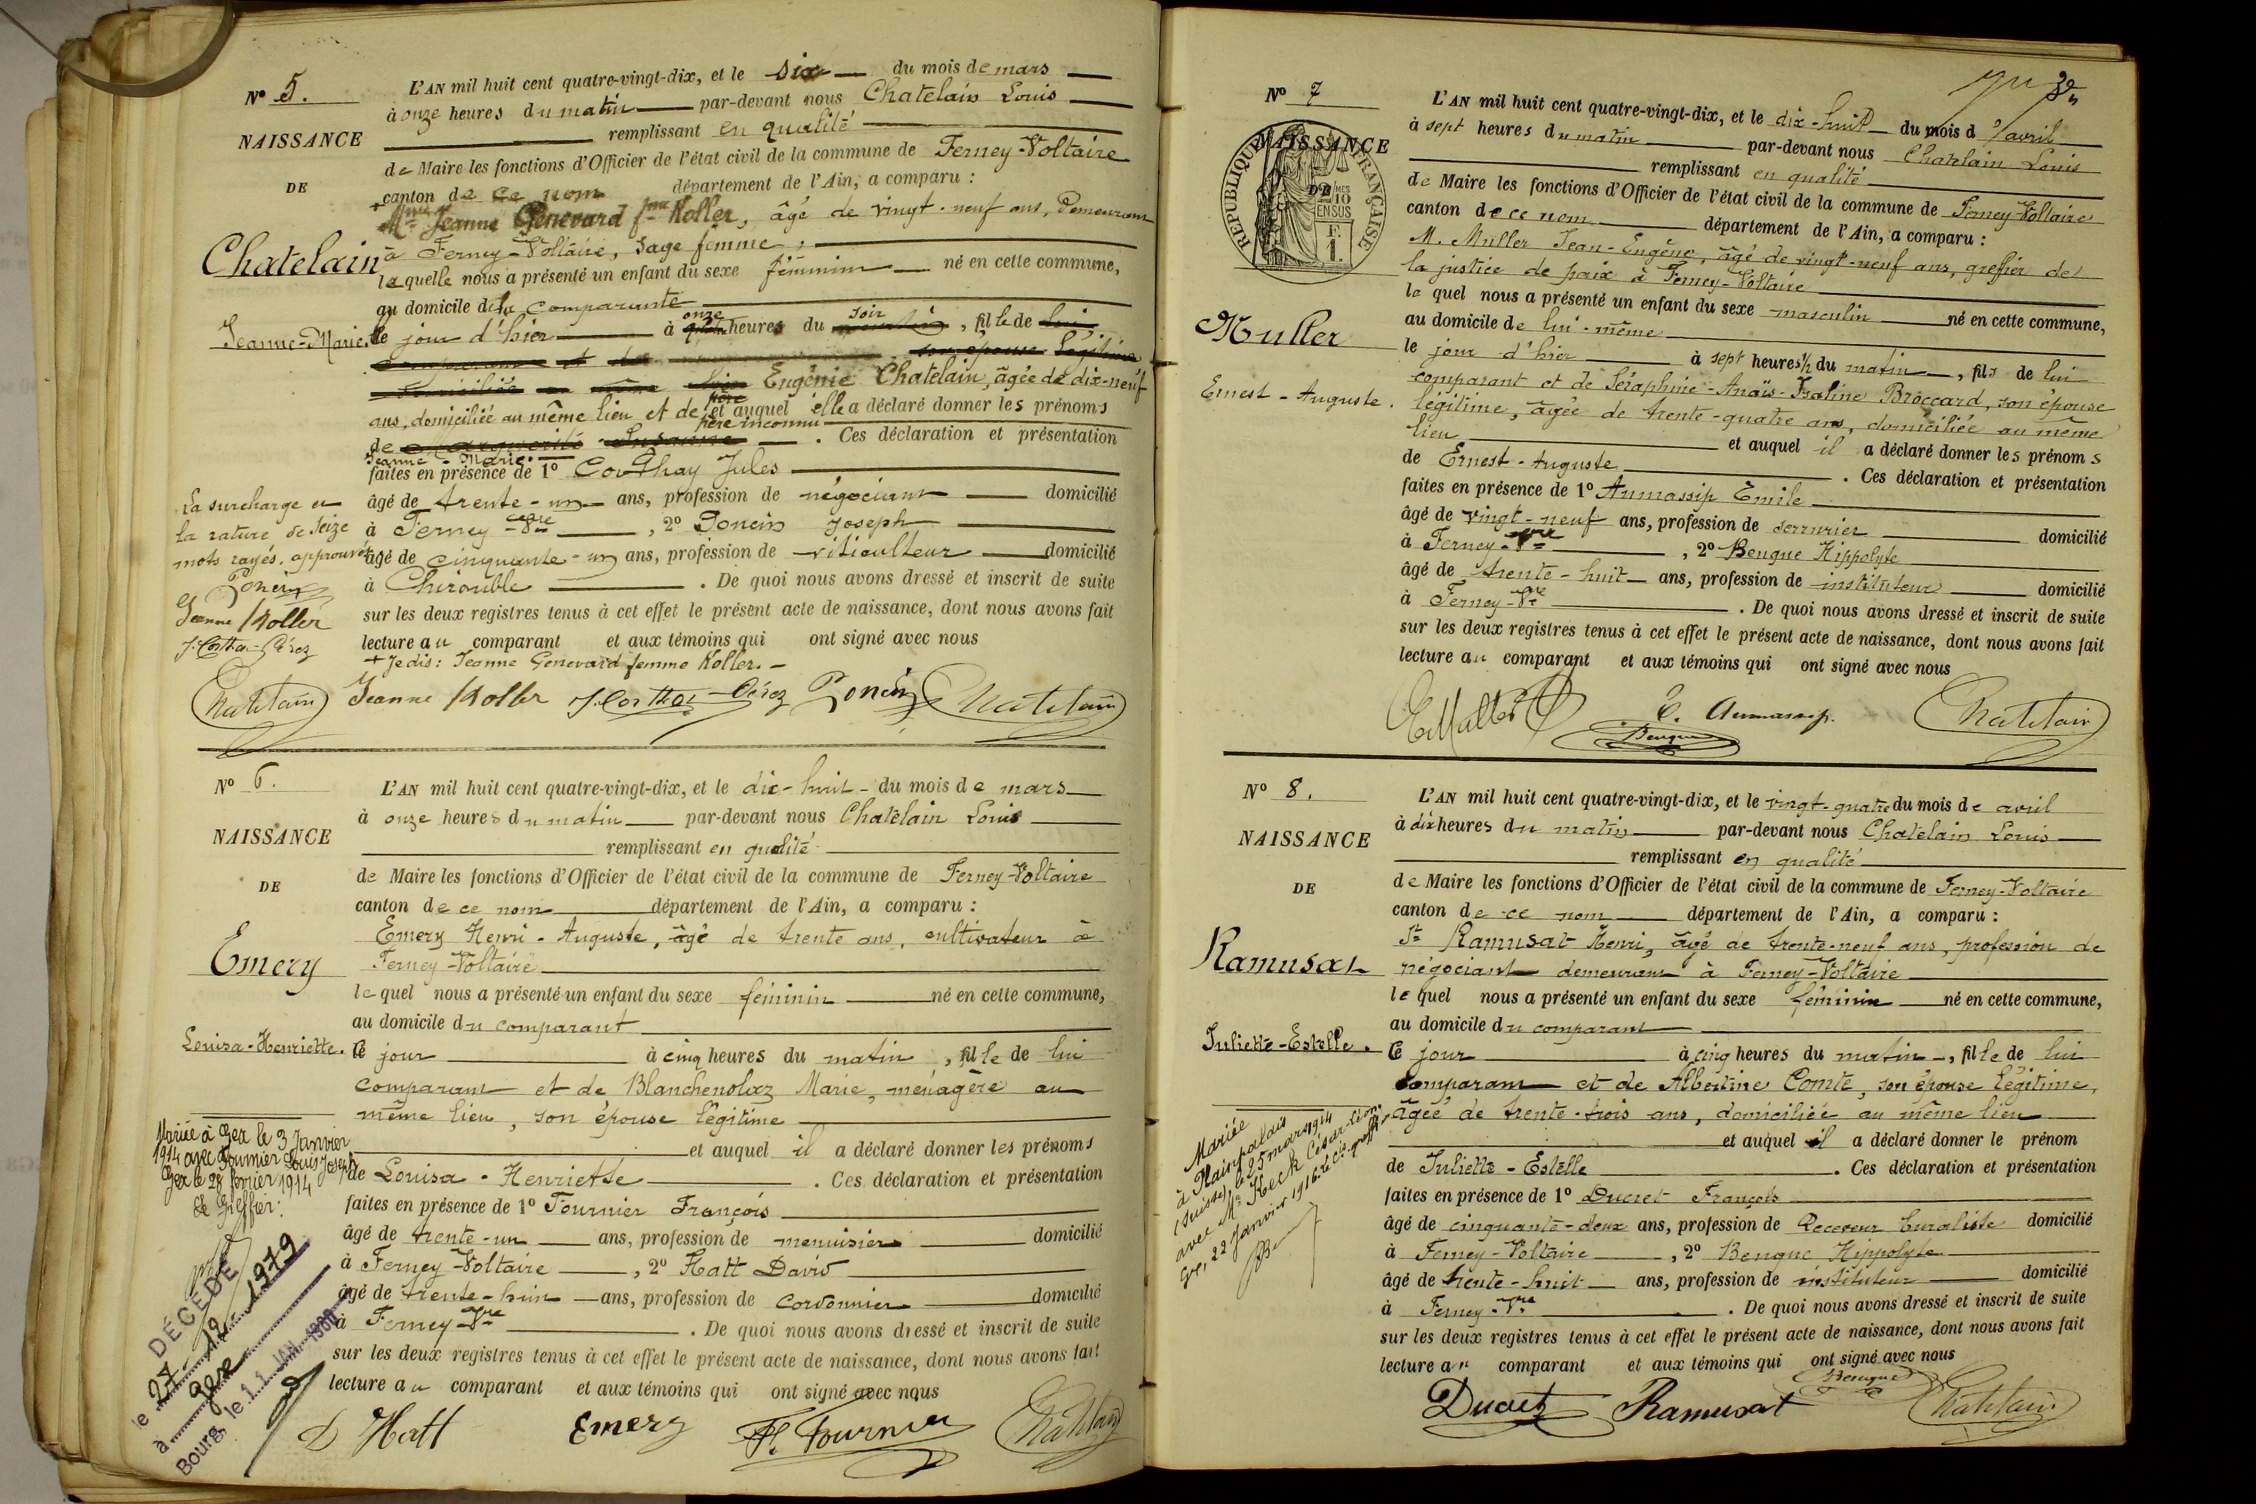 Nº 5.
NAISSANCE
DE
Chatelain
Jeanne-Marie.
L'AN mil huit cent quatre-vingt-dix, et le six du mois de mars
à onze heures du matin par-devant nous Chatelain Louis
remplissant en qualité
de Maire les fonctions d'Officier de l'état civil de la commune de Ferney-Voltaire
canton de ce nom département de l'Ain, a comparu :
+ Mme Jeanne Genevard fme Koller, âgé de vingt-neuf ans, demeurant
à Ferney-Voltaire, sage femme,
la quelle nous a présenté un enfant du sexe féminin né en cette commune,
au domicile de la comparante
le jour d'hier à onze heures du soir, fille de lui
comparant et de son épouse légitime
domiciliée au même lieu Eugénie Chatelain, âgée de dix-neuf
ans, domiciliée au même lieu et de père inconnu et auquel elle a déclaré donner les prénoms
de Jeanne-Marie. Ces déclaration et présentation
faites en présence de 1º Corthay Jules
âgé de trente-un ans, profession de négociant domicilié
à Ferney-Vre, 2º Poncin Joseph
âgé de cinquante-un ans, profession de viticulteur domicilié
à Chirouble. De quoi nous avons dressé et inscrit de suite
sur les deux registres tenus à cet effet le présent acte de naissance, dont nous avons fait
lecture au comparant et aux témoins qui ont signé avec nous
+ Je dis : Jeanne Genevard femme Koller. -
La surcharge et
la rature de seize
mots rayés, approuvés
Poncin
Jeanne Koller
Chatelain Jeanne Koller Poncin Chatelain
Nº 6.
NAISSANCE
DE
Emery
Louisa-Henriette.
L'AN mil huit cent quatre-vingt-dix, et le dix-huit du mois de mars
à onze heures du matin par-devant nous Chatelain Louis
remplissant en qualité
de Maire les fonctions d'Officier de l'état civil de la commune de Ferney-Voltaire
canton de ce nom département de l'Ain, a comparu :
Emery Henri-Auguste, âgé de trente ans, cultivateur à
Ferney-Voltaire
le quel nous a présenté un enfant du sexe féminin né en cette commune,
au domicile du comparant
ce jour à cinq heures du matin, fille de lui
comparant et de Blanchenolaz Marie, ménagère au
même lieu, son épouse légitime
et auquel il a déclaré donner les prénoms
de Louisa-Henriette. Ces déclaration et présentation
faites en présence de 1º Fournier François
âgé de trente-un ans, profession de menuisier domicilié
à Ferney-Voltaire, 2º Hatt David
âgé de trente-huit ans, profession de cordonnier domicilié
à Ferney-Vre. De quoi nous avons dressé et inscrit de suite
sur les deux registres tenus à cet effet le présent acte de naissance, dont nous avons fait
lecture au comparant et aux témoins qui ont signé avec nous
Mariée à Gex le 3 Janvier
1914 avec Fournier Louis Joseph
Gex le 28 février 1914
Le Greffier:
DÉCÉDÉ
le 27.12.1979
à Gex
Bourg, le 11 JAN. 1980
D Hatt Emery F. Fournier Chatelain
Nº 7
NAISSANCE
DE
RÉPUBLIQUE FRANÇAISE
2/10 MES
EN SUS
F.
1.
Muller
Ernest-Auguste.
L'AN mil huit cent quatre-vingt-dix, et le dix-huit du mois d'avril
à sept heures du matin par-devant nous Chatelain Louis
remplissant en qualité
de Maire les fonctions d'Officier de l'état civil de la commune de Ferney-Voltaire
canton de ce nom département de l'Ain, a comparu :
M. Muller Jean-Eugène, âgé de vingt-neuf ans, greffier de
la justice de paix à Ferney-Voltaire
le quel nous a présenté un enfant du sexe masculin né en cette commune,
au domicile de lui-même
le jour d'hier à sept heures 1/2 du matin, fils de lui
comparant et de Séraphine-Anaïs-Italine Broccard, son épouse
légitime, âgée de trente-quatre ans, domiciliée au même
lieu et auquel il a déclaré donner les prénoms
de Ernest-Auguste. Ces déclaration et présentation
faites en présence de 1º Aumassip Emile
âgé de vingt-neuf ans, profession de serrurier domicilié
à Ferney-Vre, 2º Bengue Hippolyte
âgé de trente-huit ans, profession de instituteur domicilié
à Ferney-Vre. De quoi nous avons dressé et inscrit de suite
sur les deux registres tenus à cet effet le présent acte de naissance, dont nous avons fait
lecture au comparant et aux témoins qui ont signé avec nous
E Muller E. Aumassip. Chatelain
Bengue
Nº 8.
NAISSANCE
DE
Ramusat
Juliette-Estelle.
L'AN mil huit cent quatre-vingt-dix, et le vingt-quatre du mois de avril
à dix heures du matin par-devant nous Chatelain Louis
remplissant en qualité
de Maire les fonctions d'Officier de l'état civil de la commune de Ferney-Voltaire
canton de ce nom département de l'Ain, a comparu :
Sr Ramusat Henri, âgé de trente-neuf ans, profession de
négociant demeurant à Ferney-Voltaire
le quel nous a présenté un enfant du sexe féminin né en cette commune,
au domicile du comparant
ce jour à cinq heures du matin, fille de lui
comparant et de Albertine Comte, son épouse légitime,
âgée de trente-trois ans, domiciliée au même lieu
et auquel il a déclaré donner le prénom
de Juliette-Estelle. Ces déclaration et présentation
faites en présence de 1º Ducret François
âgé de cinquante-deux ans, profession de Receveur buraliste domicilié
à Ferney-Voltaire, 2º Bengue Hippolyte
âgé de trente-huit ans, profession de instituteur domicilié
à Ferney-Vre. De quoi nous avons dressé et inscrit de suite
sur les deux registres tenus à cet effet le présent acte de naissance, dont nous avons fait
lecture au comparant et aux témoins qui ont signé avec nous
Mariée
à Plainpalais
(Suisse) le 25 mars 1914
avec Mr Keck César Léon.
Gex, 22 Janvier 1916. Le Cis-greffier
Bengue
Ducret Ramusat Chatelain